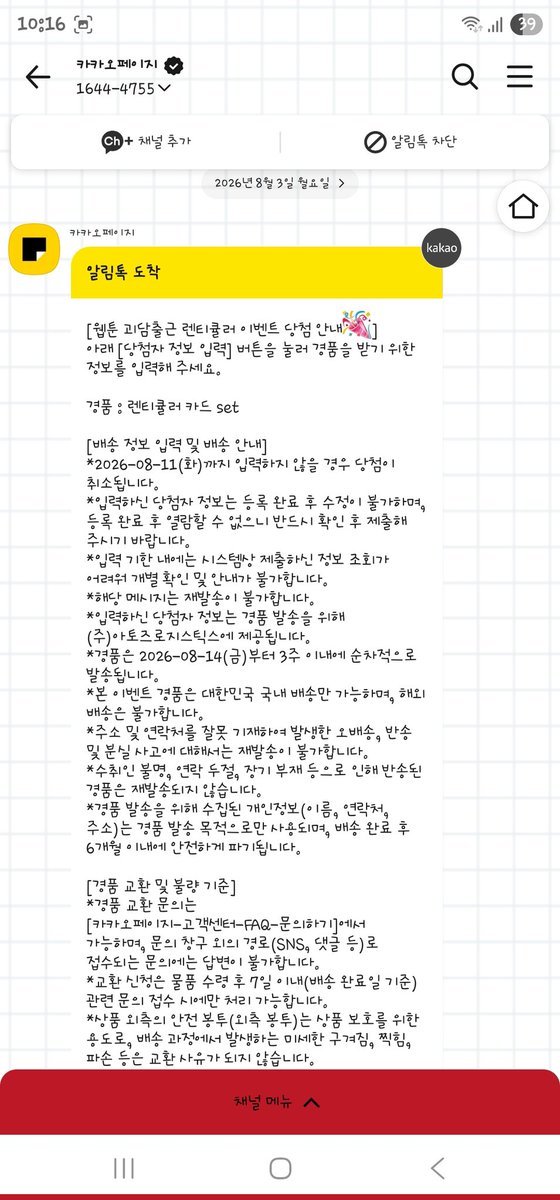 10:16
39
카카오페이지
1644-4755
Ch+ 채널 추가
알림톡 차단
2026년 8월 3일 월요일
카카오페이지
kakao
알림톡 도착
[웹툰 괴담출근 렌티큘러 이벤트 당첨 안내🎉]
아래 [당첨자 정보 입력] 버튼을 눌러 경품을 받기 위한
정보를 입력해 주세요.
경품 : 렌티큘러 카드 set
[배송 정보 입력 및 배송 안내]
*2026-08-11(화)까지 입력하지 않을 경우 당첨이
취소됩니다.
*입력하신 당첨자 정보는 등록 완료 후 수정이 불가하며,
등록 완료 후 열람할 수 없으니 반드시 확인 후 제출해
주시기 바랍니다.
*입력 기한 내에는 시스템상 제출하신 정보 조회가
어려워 개별 확인 및 안내가 불가합니다.
*해당 메시지는 재발송이 불가합니다.
*입력하신 당첨자 정보는 경품 발송을 위해
(주)아토즈로지스틱스에 제공됩니다.
*경품은 2026-08-14(금)부터 3주 이내에 순차적으로
발송됩니다.
*본 이벤트 경품은 대한민국 국내 배송만 가능하며, 해외
배송은 불가합니다.
*주소 및 연락처를 잘못 기재하여 발생한 오배송, 반송
및 분실 사고에 대해서는 재발송이 불가합니다.
*수취인 불명, 연락 두절, 장기 부재 등으로 인해 반송된
경품은 재발송되지 않습니다.
*경품 발송을 위해 수집된 개인정보(이름, 연락처,
주소)는 경품 발송 목적으로만 사용되며, 배송 완료 후
6개월 이내에 안전하게 파기됩니다.
[경품 교환 및 불량 기준]
*경품 교환 문의는
[카카오페이지-고객센터-FAQ-문의하기]에서
가능하며, 문의 창구 외의 경로(SNS, 댓글 등)로
접수되는 문의에는 답변이 불가합니다.
*교환 신청은 물품 수령 후 7일 이내(배송 완료일 기준)
관련 문의 접수 시에만 처리 가능합니다.
*상품 외측의 안전 봉투(외측 봉투)는 상품 보호를 위한
용도로, 배송 과정에서 발생하는 미세한 구겨짐, 찍힘,
파손 등은 교환 사유가 되지 않습니다.
채널 메뉴